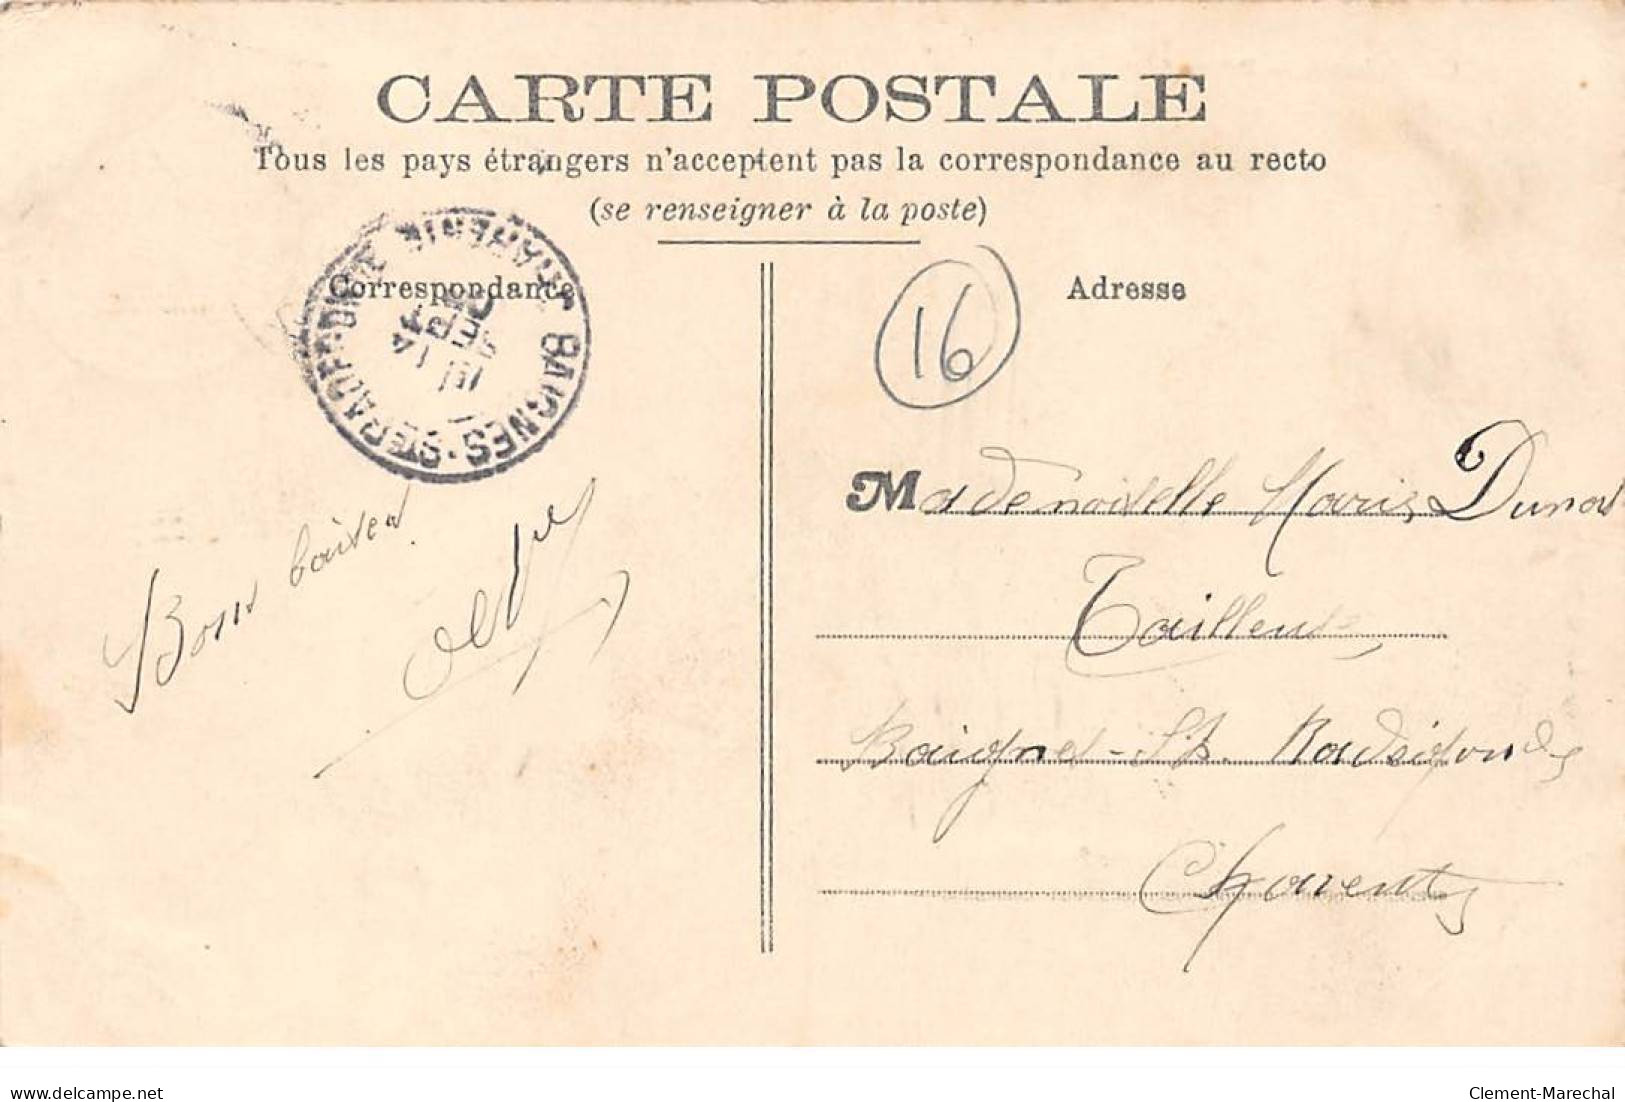 CARTE POSTALE
Tous les pays étrangers n'acceptent pas la correspondance au recto
(se renseigner à la poste)
Correspondance
Adresse
BAIGNES-STE RADEGONDE CHARENTE
16
Bons baisers
Mademoiselle Marie Duval
Tailleuse
Baignes-St. Radegonde
Charente
www.delcampe.net
Clement-Marechal